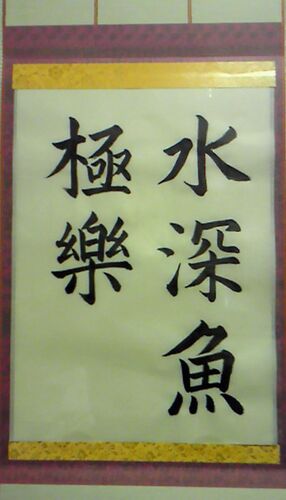 水深魚
極樂